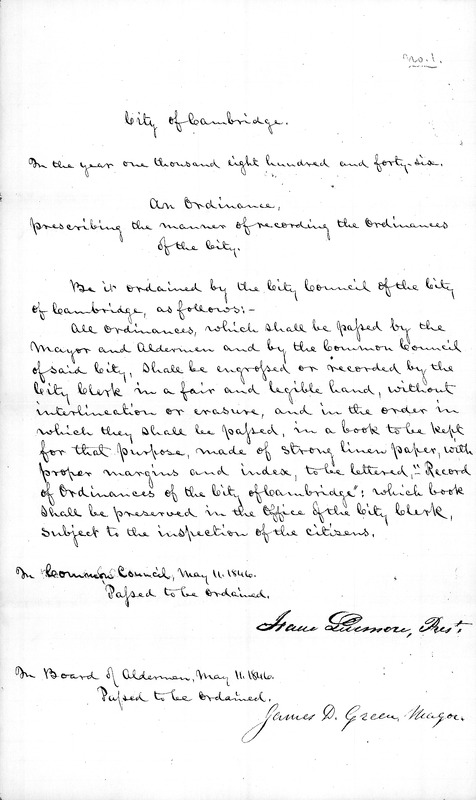 No. 1.
City of Cambridge.
In the year one thousand eight hundred and forty-six.
An Ordinance,
prescribing the manner of recording the Ordinances
of the City.
Be it ordained by the City Council of the City
of Cambridge, as follows:-
All Ordinances, which shall be passed by the
Mayor and Aldermen and by the Common Council
of said City, shall be engrossed or recorded by the
City Clerk in a fair and legible hand, without
interlineation or erasure, and in the order in
which they shall be passed, in a book to be kept
for that purpose, made of strong linen paper, with
proper margins and index, to be lettered, "Record
of Ordinances of the City of Cambridge"; which book
shall be preserved in the Office of the City Clerk,
subject to the inspection of the citizens.
In Common Council, May 11. 1846.
Passed to be Ordained.
Isaac Livermore, Prest.
In Board of Aldermen, May 11. 1846.
Passed to be Ordained.
James D. Green, Mayor.